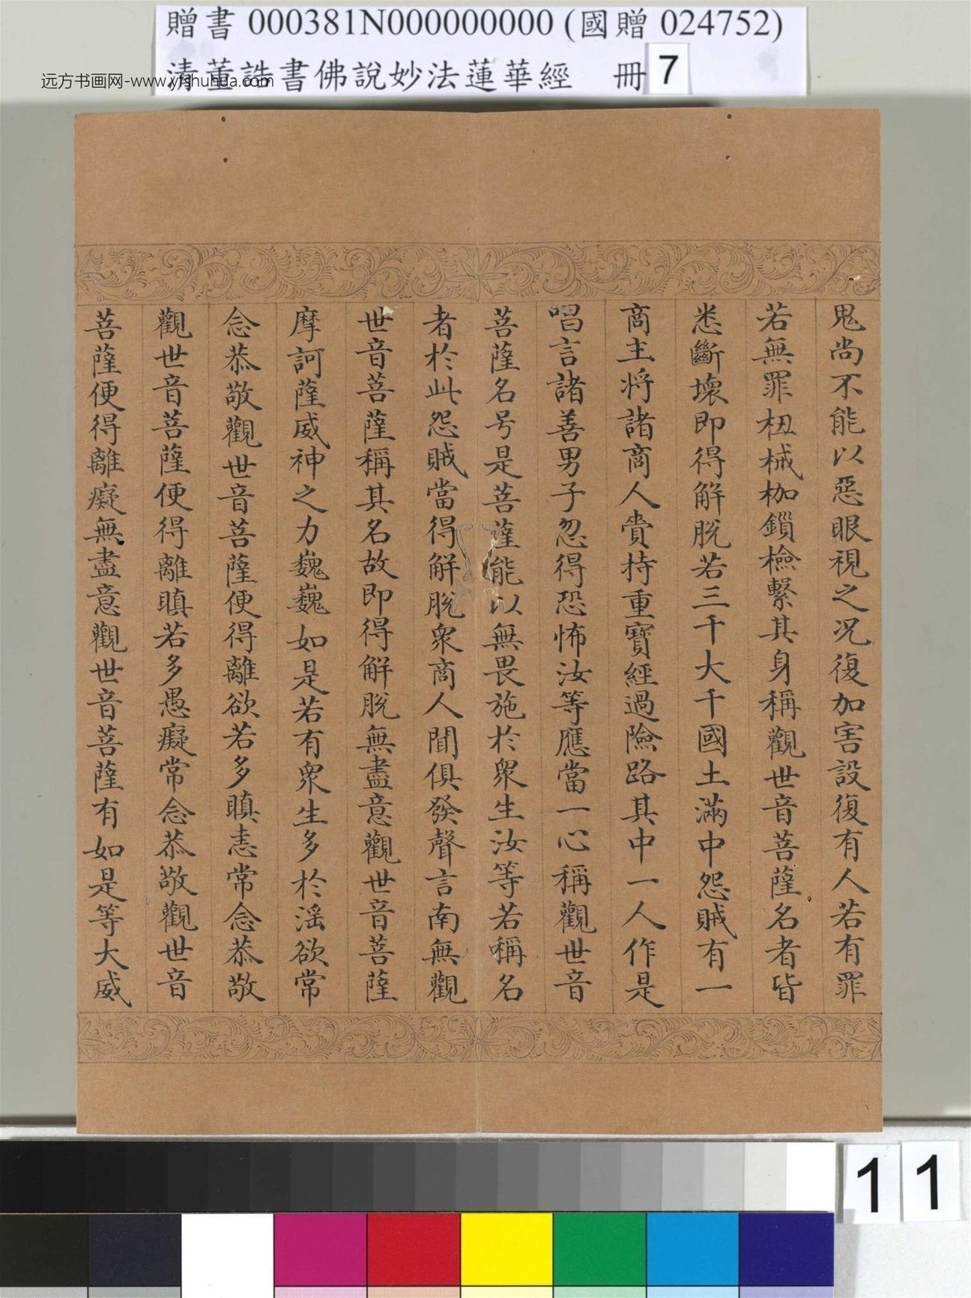 贈書 000381N000000000 (國贈 024752)
清董誥書佛說妙法蓮華經 冊 7
远方书画网-www.yfshuhua.com
鬼尚不能以惡眼視之况復加害設復有人若有罪
若無罪杻械枷鎖檢繫其身稱觀世音菩薩名者皆
悉斷壞即得解脫若三千大千國土滿中怨賊有一
商主将諸商人賫持重寶經過險路其中一人作是
唱言諸善男子忽得恐怖汝等應當一心稱觀世音
菩薩名号是菩薩能以無畏施於衆生汝等若稱名
者於此怨賊當得解脫衆商人聞俱發聲言南無觀
世音菩薩稱其名故即得解脫無盡意觀世音菩薩
摩訶薩威神之力巍巍如是若有衆生多於滛欲常
念恭敬觀世音菩薩便得離欲若多瞋恚常念恭敬
觀世音菩薩便得離瞋若多愚癡常念恭敬觀世音
菩薩便得離癡無盡意觀世音菩薩有如是等大威
11